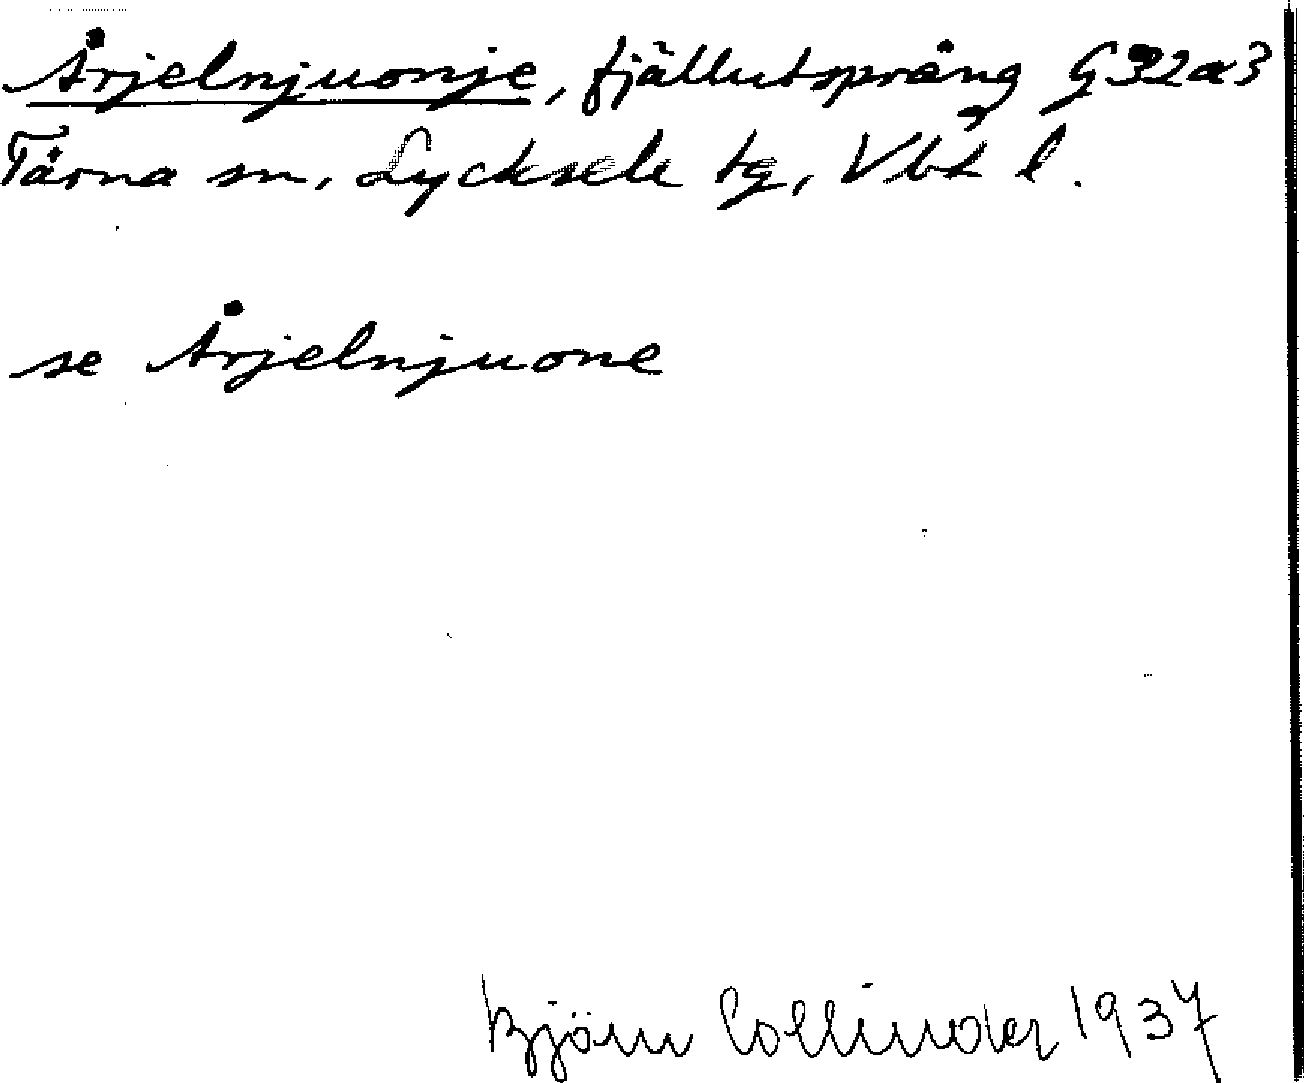 Årjelnjuonje, fjällutsprång G32a3
Tärna sn, Lycksele tg, Vbt l.
se Årjelnjuone
Björn Collinder 1937